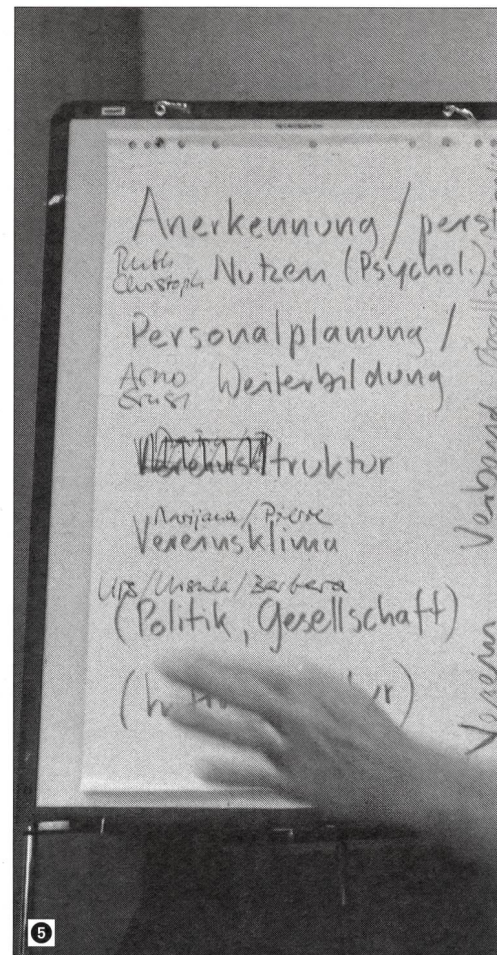 Anerkennung / pers
Ruth
Christoph Nutzen (Psychol.)
Personalplanung /
Arno
Ernst Weiterbildung
struktur
Marijana / Pierre
Vereinsklima
Urs / Ursula / Barbara
(Politik, Gesellschaft)
Verein Verband Gesellschaft
5